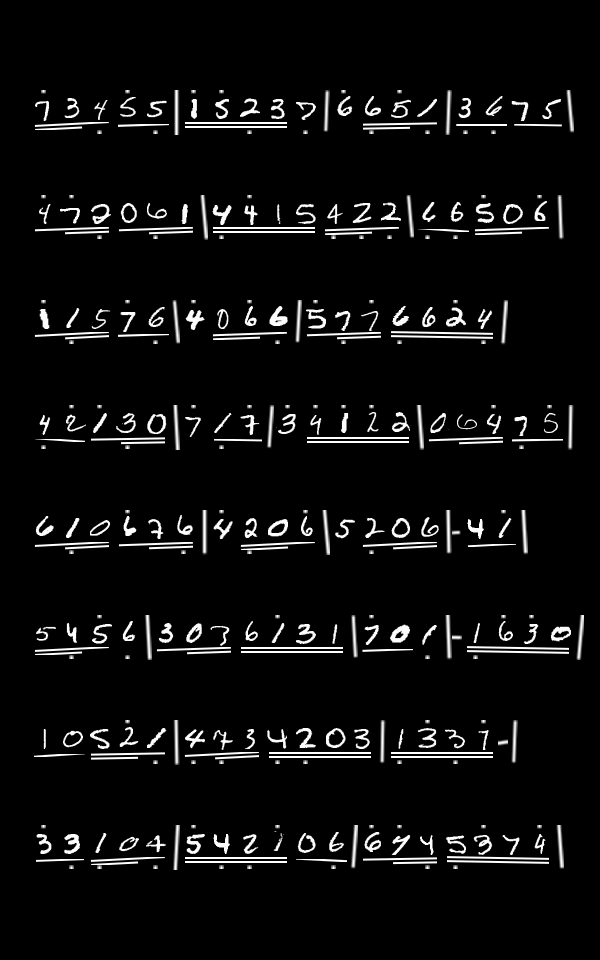 73455|15237|6651|3675
472061|4415422|66506
11576|4066|5776624
42130|717|34122|06475
610676|4206|5206|-41
5456|3036131|701|-1630
10521|4734203|1337-|
33104|542106|6745374|